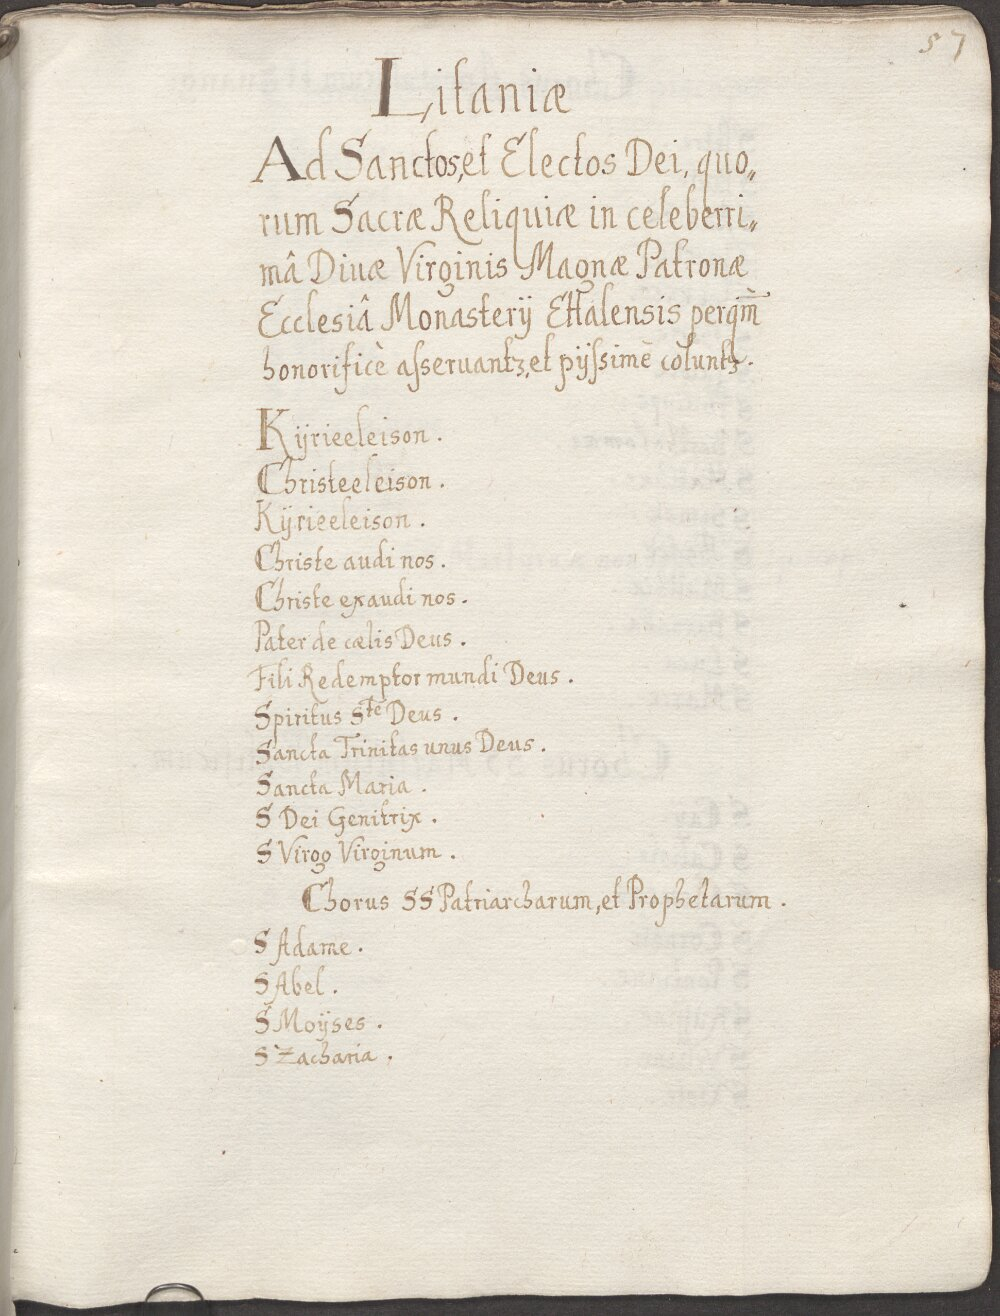 57
Litaniæ
Ad Sanctos, et Electos Dei, quo„
rum Sacræ Reliquiæ in celeberri„
mâ Diuæ Virginis Magnæ Patronæ
Ecclesiâ Monasterÿ Ettalensis perqm̃
honorificè aſseruantꝫ, et pÿſsimè coluntꝫ.
Kÿrieeleison.
Christeeleison.
Kÿrieeleison.
Christe audi nos.
Christe exaudi nos.
Pater de cælis Deus.
Fili Redemptor mundi Deus.
Spiritus Ste Deus.
Sancta Trinitas unus Deus.
Sancta Maria.
S Dei Genitrix.
S Virgo Virginum.
Chorus SS Patriarcharum, et Prophetarum.
S Adame.
S Abel.
S Moÿses.
S Zacharia.